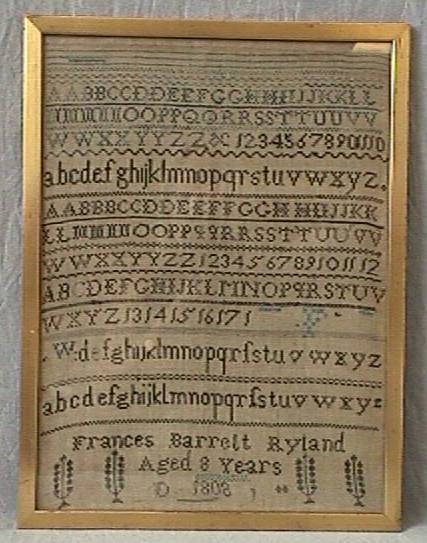 AABBCCDDEEFFGGHHIIJJKKLL
MMNNOOPPQQRRSSTTUUVV
WWXXYYZZ&C 1234567891011
abcdefghijklmnopqrstuvwxyz.
AABBBCCDDEEFFGGHHIIJJKK
LLMMNNOOPPQQRRSSTTUUVV
WWXXYYZZ123456789101112
ABCDEFGHIJKLMNOPQRSTUV
WXYZ1314151617 1
defghijklmnopqrſstuvwxyz
abcdefghijklmnopqrſstuvwxyz
Frances Barrett Ryland
Aged 8 Years
1808